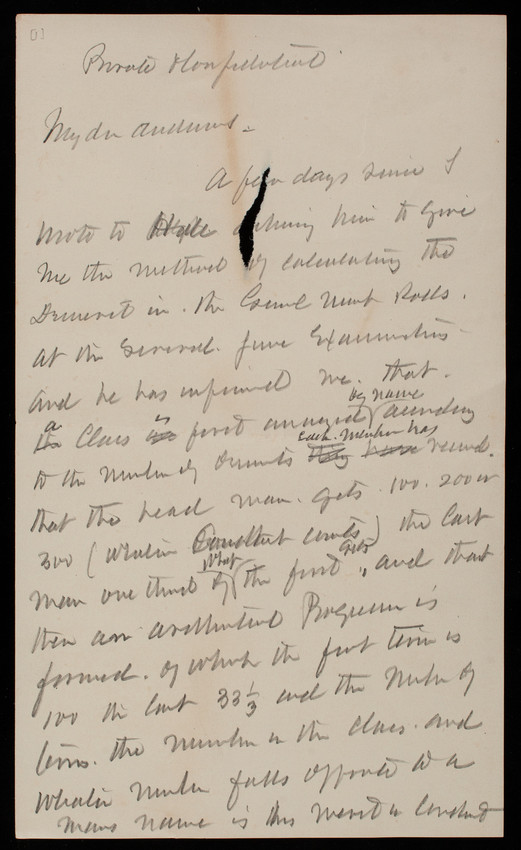 [1]
Private & Confidential
My dr Andrews.
A few days since I
wrote to Hyde asking him to give
me the method of calculating the
Demerit in. the General Merit Rolls.
at the several. June Examinations
and he has informed me. that.
by name
a Class is first arranged according
each. member has
to the number of Demerits they have receivd.
that the head man. gets. 100. 200 or
300 (whatever Conduct counts) the last
what gets
man one third of the first, and that
then an arithmetical Progression is
formed. of which the first term is
100 the last 33 1/3 and the Number of
terms. the number in the class. and
whatever number falls opposite to a
mans name is his merit in Conduct